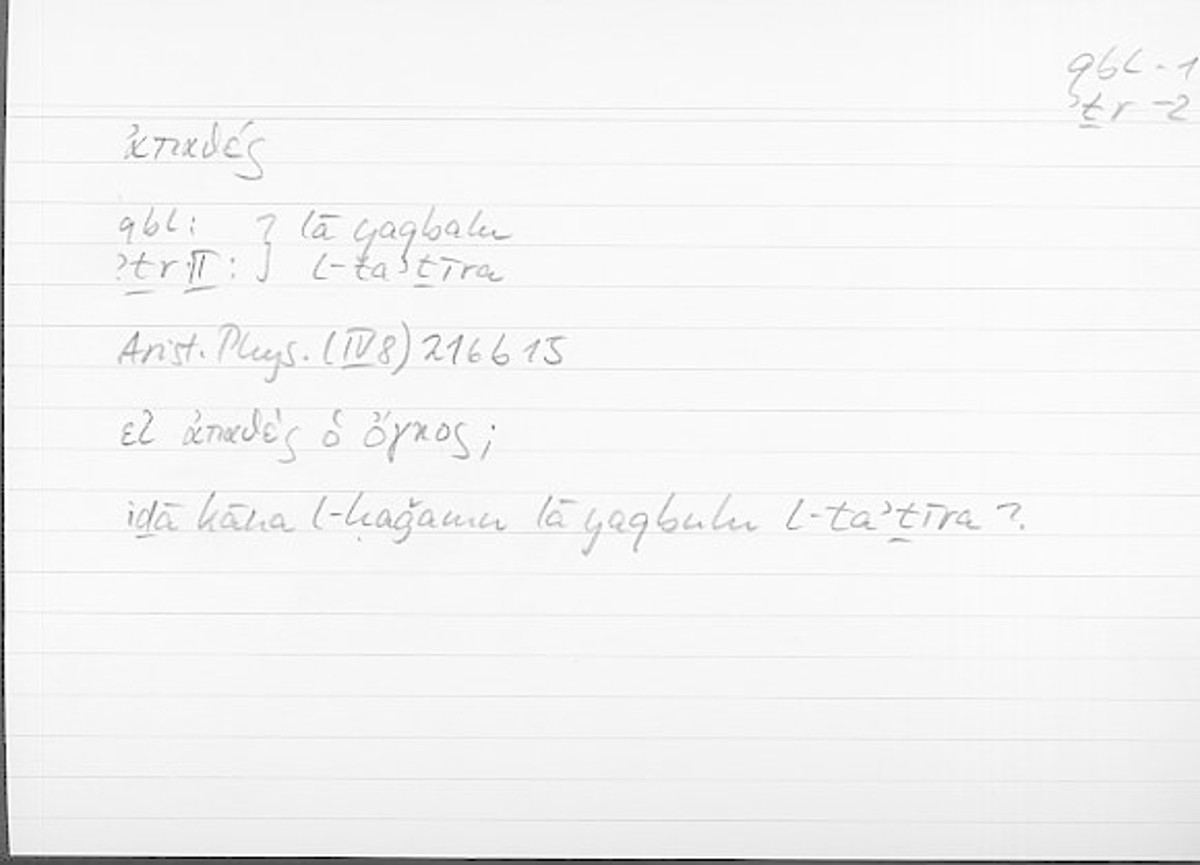 qbl - 1
ʾṯr - 2
ἀπαθές
qbl: } lā yaqbalu
ʾṯr II: } l-taʾṯīra
Arist. Phys. (IV 8) 216 b 15
εἰ ἀπαθὲς ὁ ὄγκος;
iḏā kāna l-ḥaǧamu lā yaqbulu l-taʾṯīra?